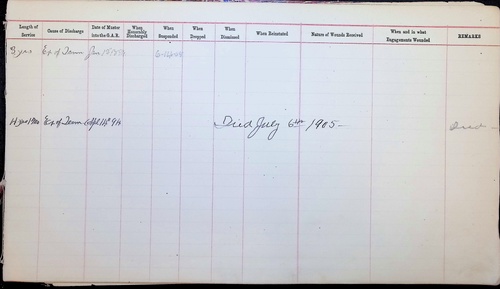 Length of Service Cause of Discharge Date of Muster into the G.A.R. When Honorably Discharged When Suspended When Dropped When Dismissed When Reinstated Nature of Wounds Received When and in what Engagements Wounded REMARKS
3 yrs Ex. of Term Jan.
4 yrs Ex. of Term Apl. Died July 6th 1905 — Dead